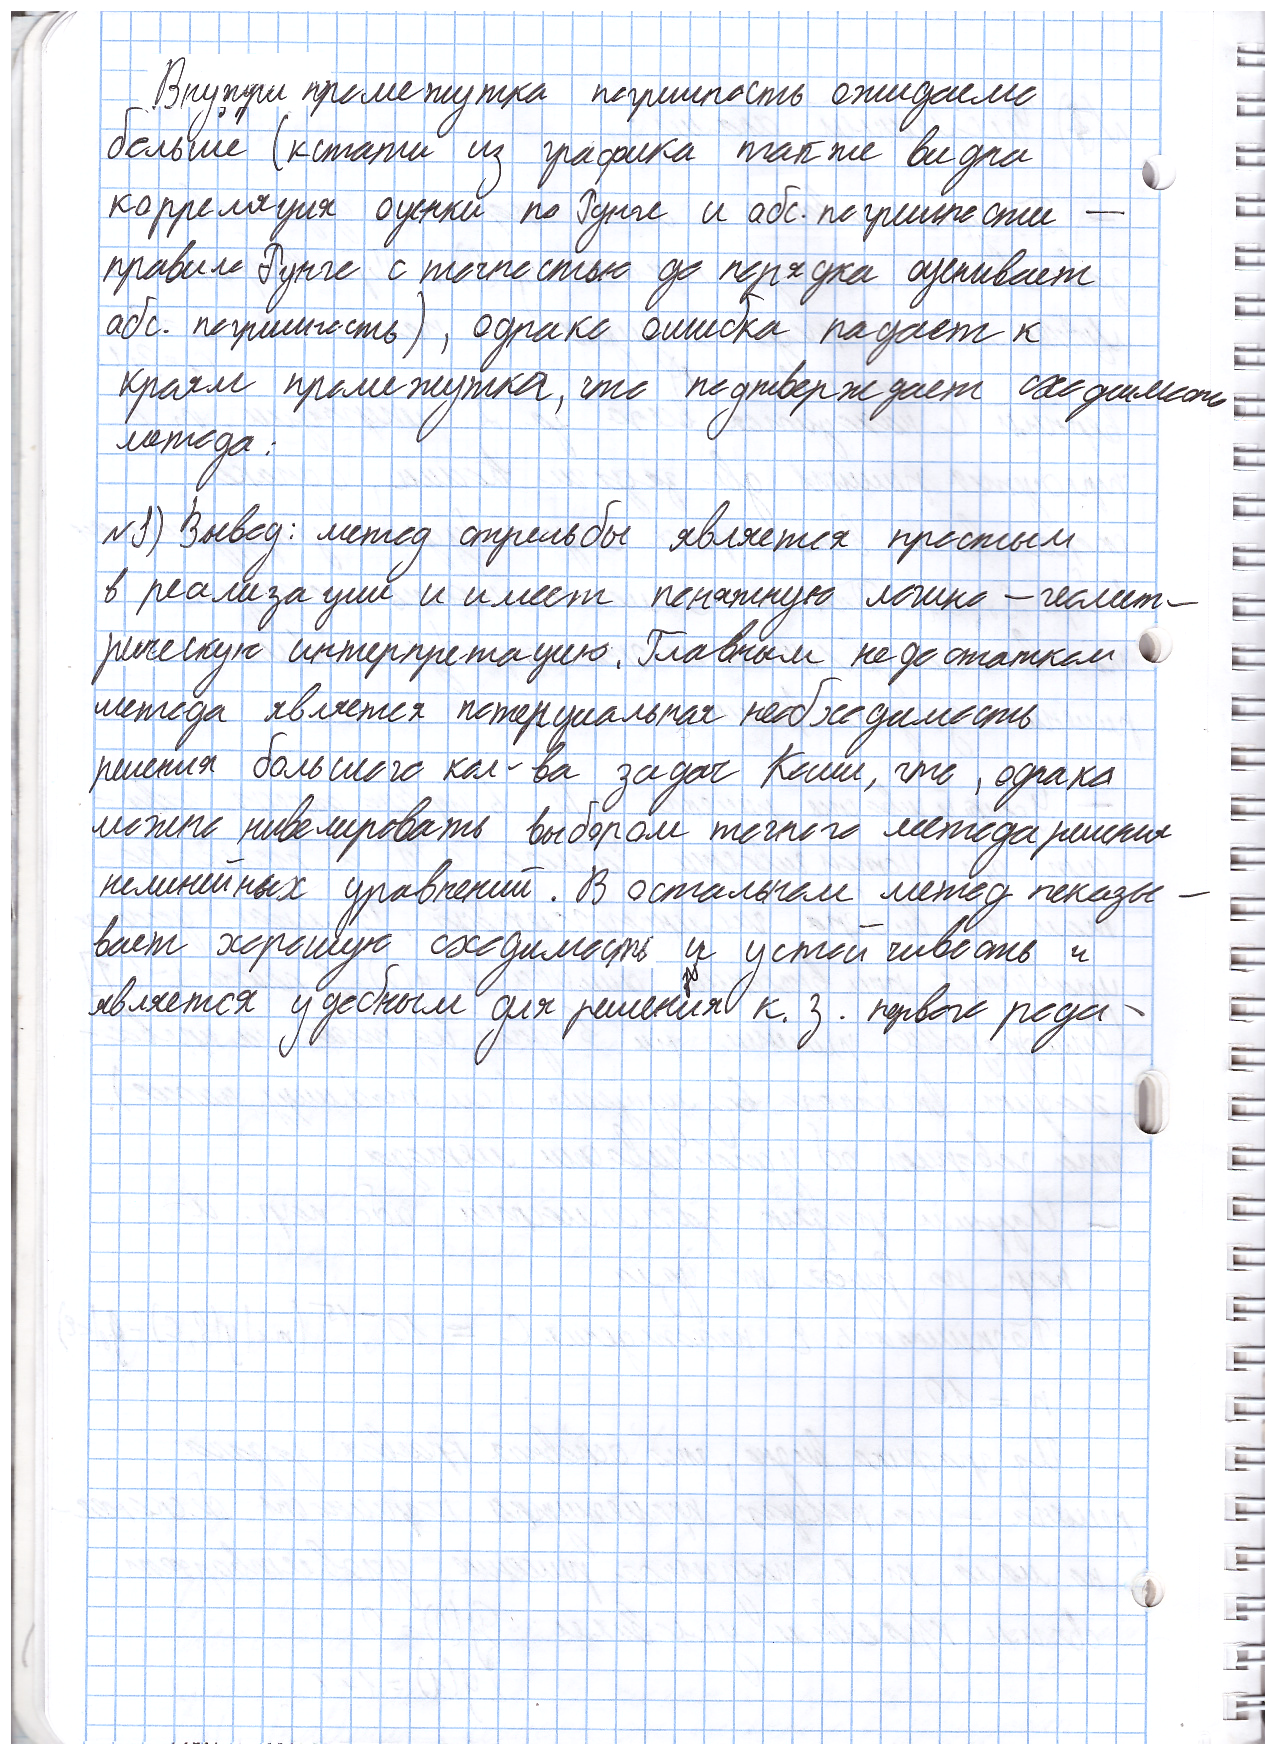 Внутри промежутка погрешность ожидаемо
больше (кстати из графика также видна
корреляция оценки по Рунге и абс. погрешности —
правило Рунге с точностью до порядка оценивает
абс. погрешность), однако ошибка падает к
краям промежутка, что подтверждает сходимость
метода:
№9) Вывод: метод стрельбы является простым
в реализации и имеет понятную логико-геомет-
рическую интерпретацию. Главным недостатком
метода является потенциальная необходимость
решения большого кол-ва задач Коши, что, однако
можно нивелировать выбором точного метода решения
нелинейных уравнений. В остальном метод показы-
вает хорошую сходимость и устойчивость и
является удобным для решения к. з. первого рода.